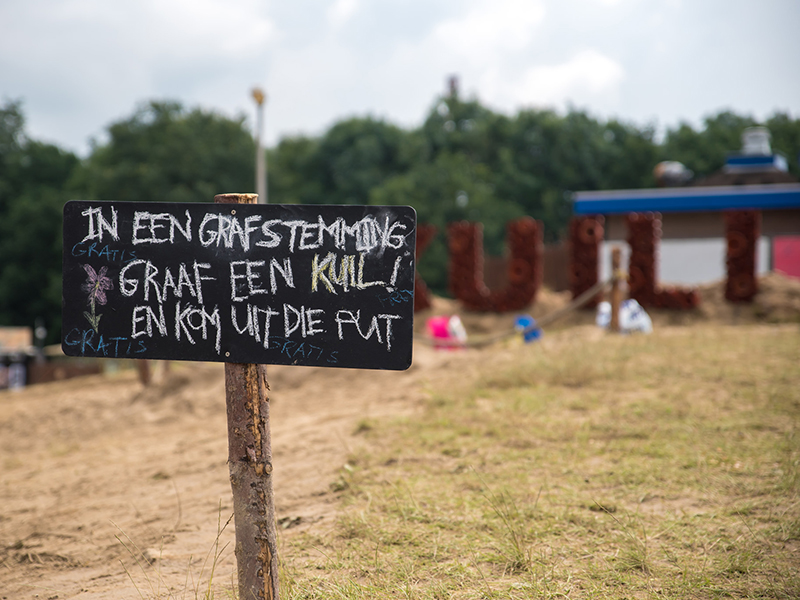 IN EEN GRAFSTEMMING
GRATIS
GRAAF EEN KUIL!
EN KOM UIT DIE PUT
GRATIS GRATIS
KUIL!